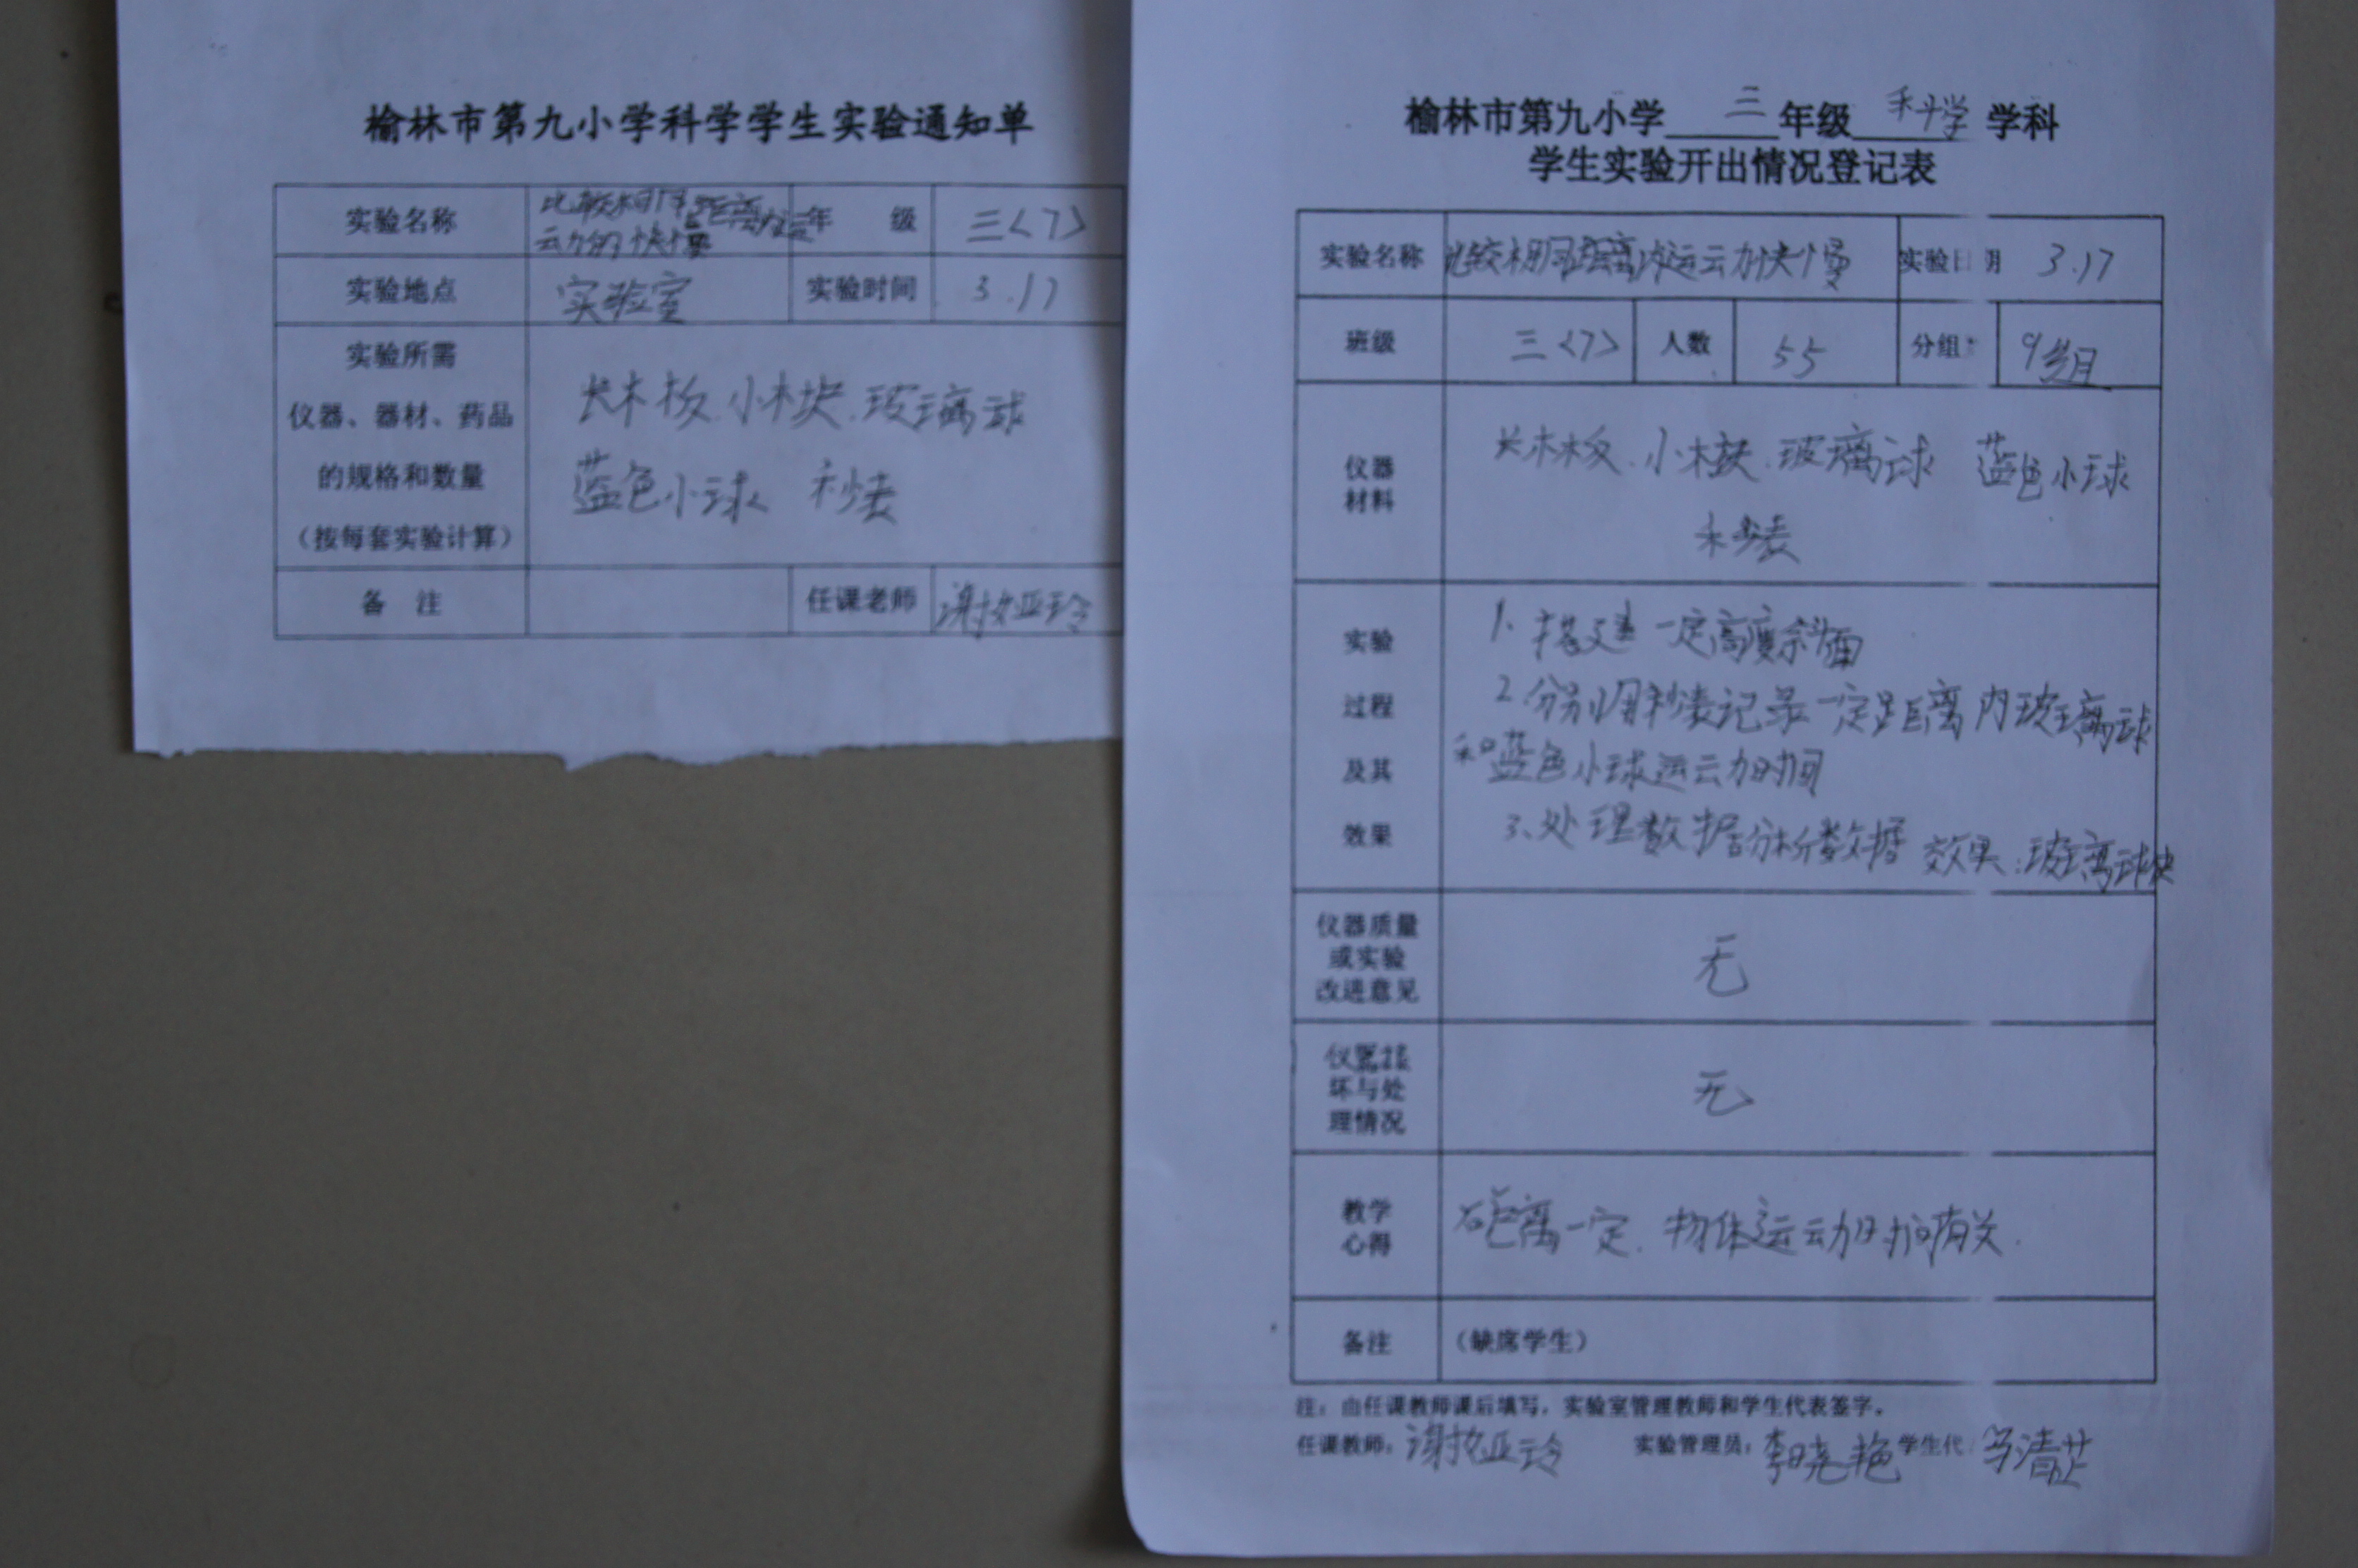 榆林市第九小学科学学生实验通知单
实验名称 比较相同距离内运动的快慢 年 级 三<7>
实验地点 实验室 实验时间 3.17
实验所需
仪器、器材、药品
的规格和数量
(按每套实验计算)
长木板、小木块、玻璃球
蓝色小球 秒表
备 注 任课老师 谢亚玲
榆林市第九小学 三 年级 科学 学科
学生实验开出情况登记表
实验名称 比较相同距离内运动快慢 实验日期 3.17
班级 三<7> 人数 55 分组 9组
仪器
材料
长木板、小木块、玻璃球 蓝色小球
秒表
实验
过程
及其
效果
1、搭建一定高度斜面
2、分别用秒表记录一定距离内玻璃球
和蓝色小球运动时间
3、处理数据分析数据 效果:玻璃球快
仪器质量
或实验
改进意见
无
仪器损
坏与处
理情况
无
教学
心得
距离一定、物体运动时间有关.
备注 (缺席学生)
注:由任课教师课后填写,实验室管理教师和学生代表签字。
任课教师: 谢亚玲 实验管理员: 李晓艳 学生代